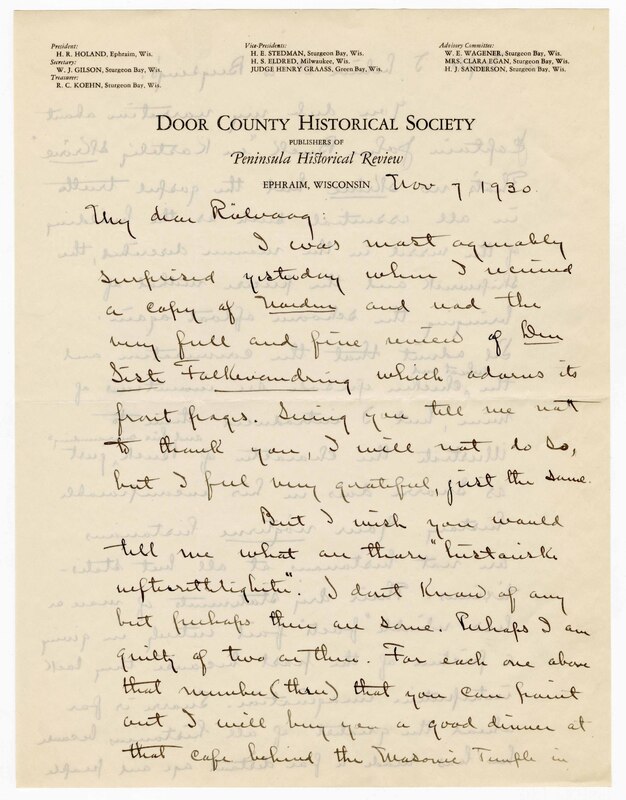 President:
H. R. HOLAND, Ephraim, Wis.
Secretary:
W. J. GILSON, Sturgeon Bay, Wis.
Treasurer:
R. C. KOEHN, Sturgeon Bay, Wis.
Vice-Presidents:
H. E. STEDMAN, Sturgeon Bay, Wis.
H. S. ELDRED, Milwaukee, Wis.
JUDGE HENRY GRAASS, Green Bay, Wis.
Advisory Committee:
W. E. WAGENER, Sturgeon Bay, Wis.
MRS. CLARA EGAN, Sturgeon Bay, Wis.
H. J. SANDERSON, Sturgeon Bay, Wis.
DOOR COUNTY HISTORICAL SOCIETY
PUBLISHERS OF
Peninsula Historical Review
EPHRAIM, WISCONSIN Nov 7 1930.
My dear Rölvaag:
I was most agreeably
surprised yesterday when I received
a copy of Norden and read the
very full and fine review of Den
Siste Folkevandring which adorns its
front pages. Seeing you tell me not
to thank you, I will not do so,
but I feel very grateful, just the same.
But I wish you would
tell me what are these "historiske
uefterrettligheter". I don't know of any
but perhaps there are some. Perhaps I am
guilty of two or three. For each one above
that number (three) that you can point
out I will buy you a good dinner at
that cafe behind the Masonic Temple in